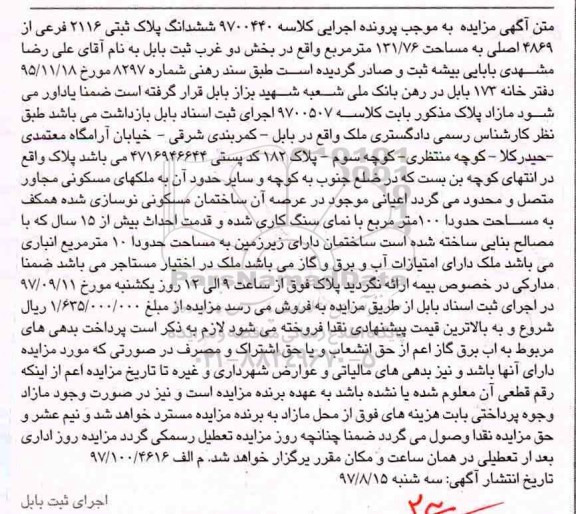 متن آگهی مزایده به موجب پرونده اجرایی کلاسه ۹۷۰۰۴۴۰ ششدانگ پلاک ثبتی ۲۱۱۶ فرعی از
۴۸۶۹ اصلی به مساحت ۱۳۱/۷۶ مترمربع واقع در بخش دو غرب ثبت بابل به نام آقای علی رضا
مشهدی بابایی بیشه ثبت و صادر گردیده است طبق سند رهنی شماره ۸۲۹۷ مورخ ۹۵/۱۱/۱۸
دفتر خانه ۱۷۳ بابل در رهن بانک ملی شعبه شهید بزاز بابل قرار گرفته است ضمنا یاداور می
شود مازاد پلاک مذکور بابت کلاسه ۹۷۰۰۵۰۷ اجرای ثبت اسناد بابل بازداشت می باشد طبق
نظر کارشناس رسمی دادگستری ملک واقع در بابل – کمربندی شرقی – خیابان آرامگاه معتمدی
–حیدرکلا – کوچه منتظری– کوچه سوم – پلاک ۱۸۲ کد پستی ۴۷۱۶۹۴۶۶۴۴ می باشد پلاک واقع
در انتهای کوچه بن بست که در ضلع جنوب به کوچه و سایر حدود آن به ملکهای مسکونی مجاور
متصل و محدود می گردد اعیانی موجود در عرصه آن ساختمان مسکونی نوسازی شده همکف
به مساحت حدودا ۱۰۰متر مربع با نمای سنگ کاری شده و قدمت احداث بیش از ۱۵ سال که با
مصالح بنایی ساخته شده است ساختمان دارای زیرزمین به مساحت حدودا ۱۰ مترمربع انباری
می باشد ملک دارای امتیازات آب و برق و گاز می باشد ملک در اختیار مستاجر می باشد ضمنا
مدارکی در خصوص بیمه ارائه نگردید پلاک فوق از ساعت ۹ الی ۱۲ روز یکشنبه مورخ ۹۷/۰۹/۱۱
در اجرای ثبت اسناد بابل از طریق مزایده به فروش می رسد مزایده از مبلغ ۱/۶۳۵/۰۰۰/۰۰۰ ریال
شروع و به بالاترین قیمت پیشنهادی نقدا فروخته می شود لازم به ذکر است پرداخت بدهی های
مربوط به اب برق گاز اعم از حق انشعاب و یا حق اشتراک و مصرف در صورتی که مورد مزایده
دارای آنها باشد و نیز بدهی های مالیاتی و عوارض شهرداری و غیره تا تاریخ مزایده اعم از اینکه
رقم قطعی آن معلوم شده یا نشده باشد به عهده برنده مزایده است و نیز در صورت وجود مازاد
وجوه پرداختی بابت هزینه های فوق از محل مازاد به برنده مزایده مسترد خواهد شد و نیم عشر و
حق مزایده نقدا وصول می گردد ضمنا چنانچه روز مزایده تعطیل رسمکی گردد مزایده روز اداری
بعد از تعطیلی در همان ساعت و مکان مقرر برگزار خواهد شد. م الف ۹۷/۱۰۰/۴۶۱۶
تاریخ انتشار آگهی: سه شنبه ۹۷/۸/۱۵
اجرای ثبت بابل